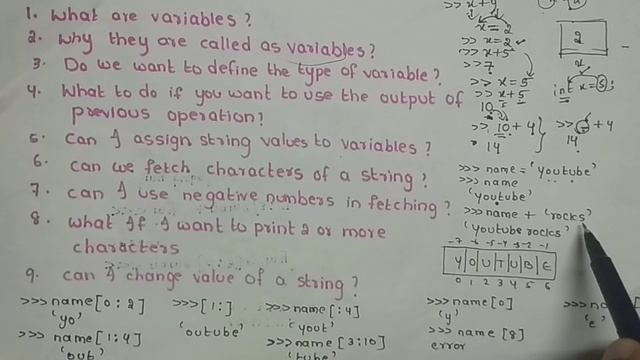 1. What are variables ?
2. Why they are called as variables?
3. Do we want to define the type of variable ?
4. What to do if you want to use the output of
previous operation?
5. Can I assign string values to variables ?
6. Can we fetch characters of a string ?
7. Can I use negative numbers in fetching ?
8. What if I want to print 2 or more
characters
9. Can I change value of a string ?
>>> name [0 : 2]
'yo'
>>> name [1:4]
'out'
>>> [1:]
'outube'
>>> name [:4]
'yout'
>>> name [3:10]
'tube'
>> x+y
x = 2
>> x=2
>> x+5
>> 7
>> x=5
>> x+5
10
>> 10+4
14
2
x
int x=5;
>> _ + 4
14
>>> name = 'youtube'
>>> name
'youtube'
>>> name + 'rocks'
'youtube rocks'
-7 -6 -5 -4 -3 -2 -1
Y O U T U B E
0 1 2 3 4 5 6
>>> name [0]
'y'
>>> name [8]
error
'e'